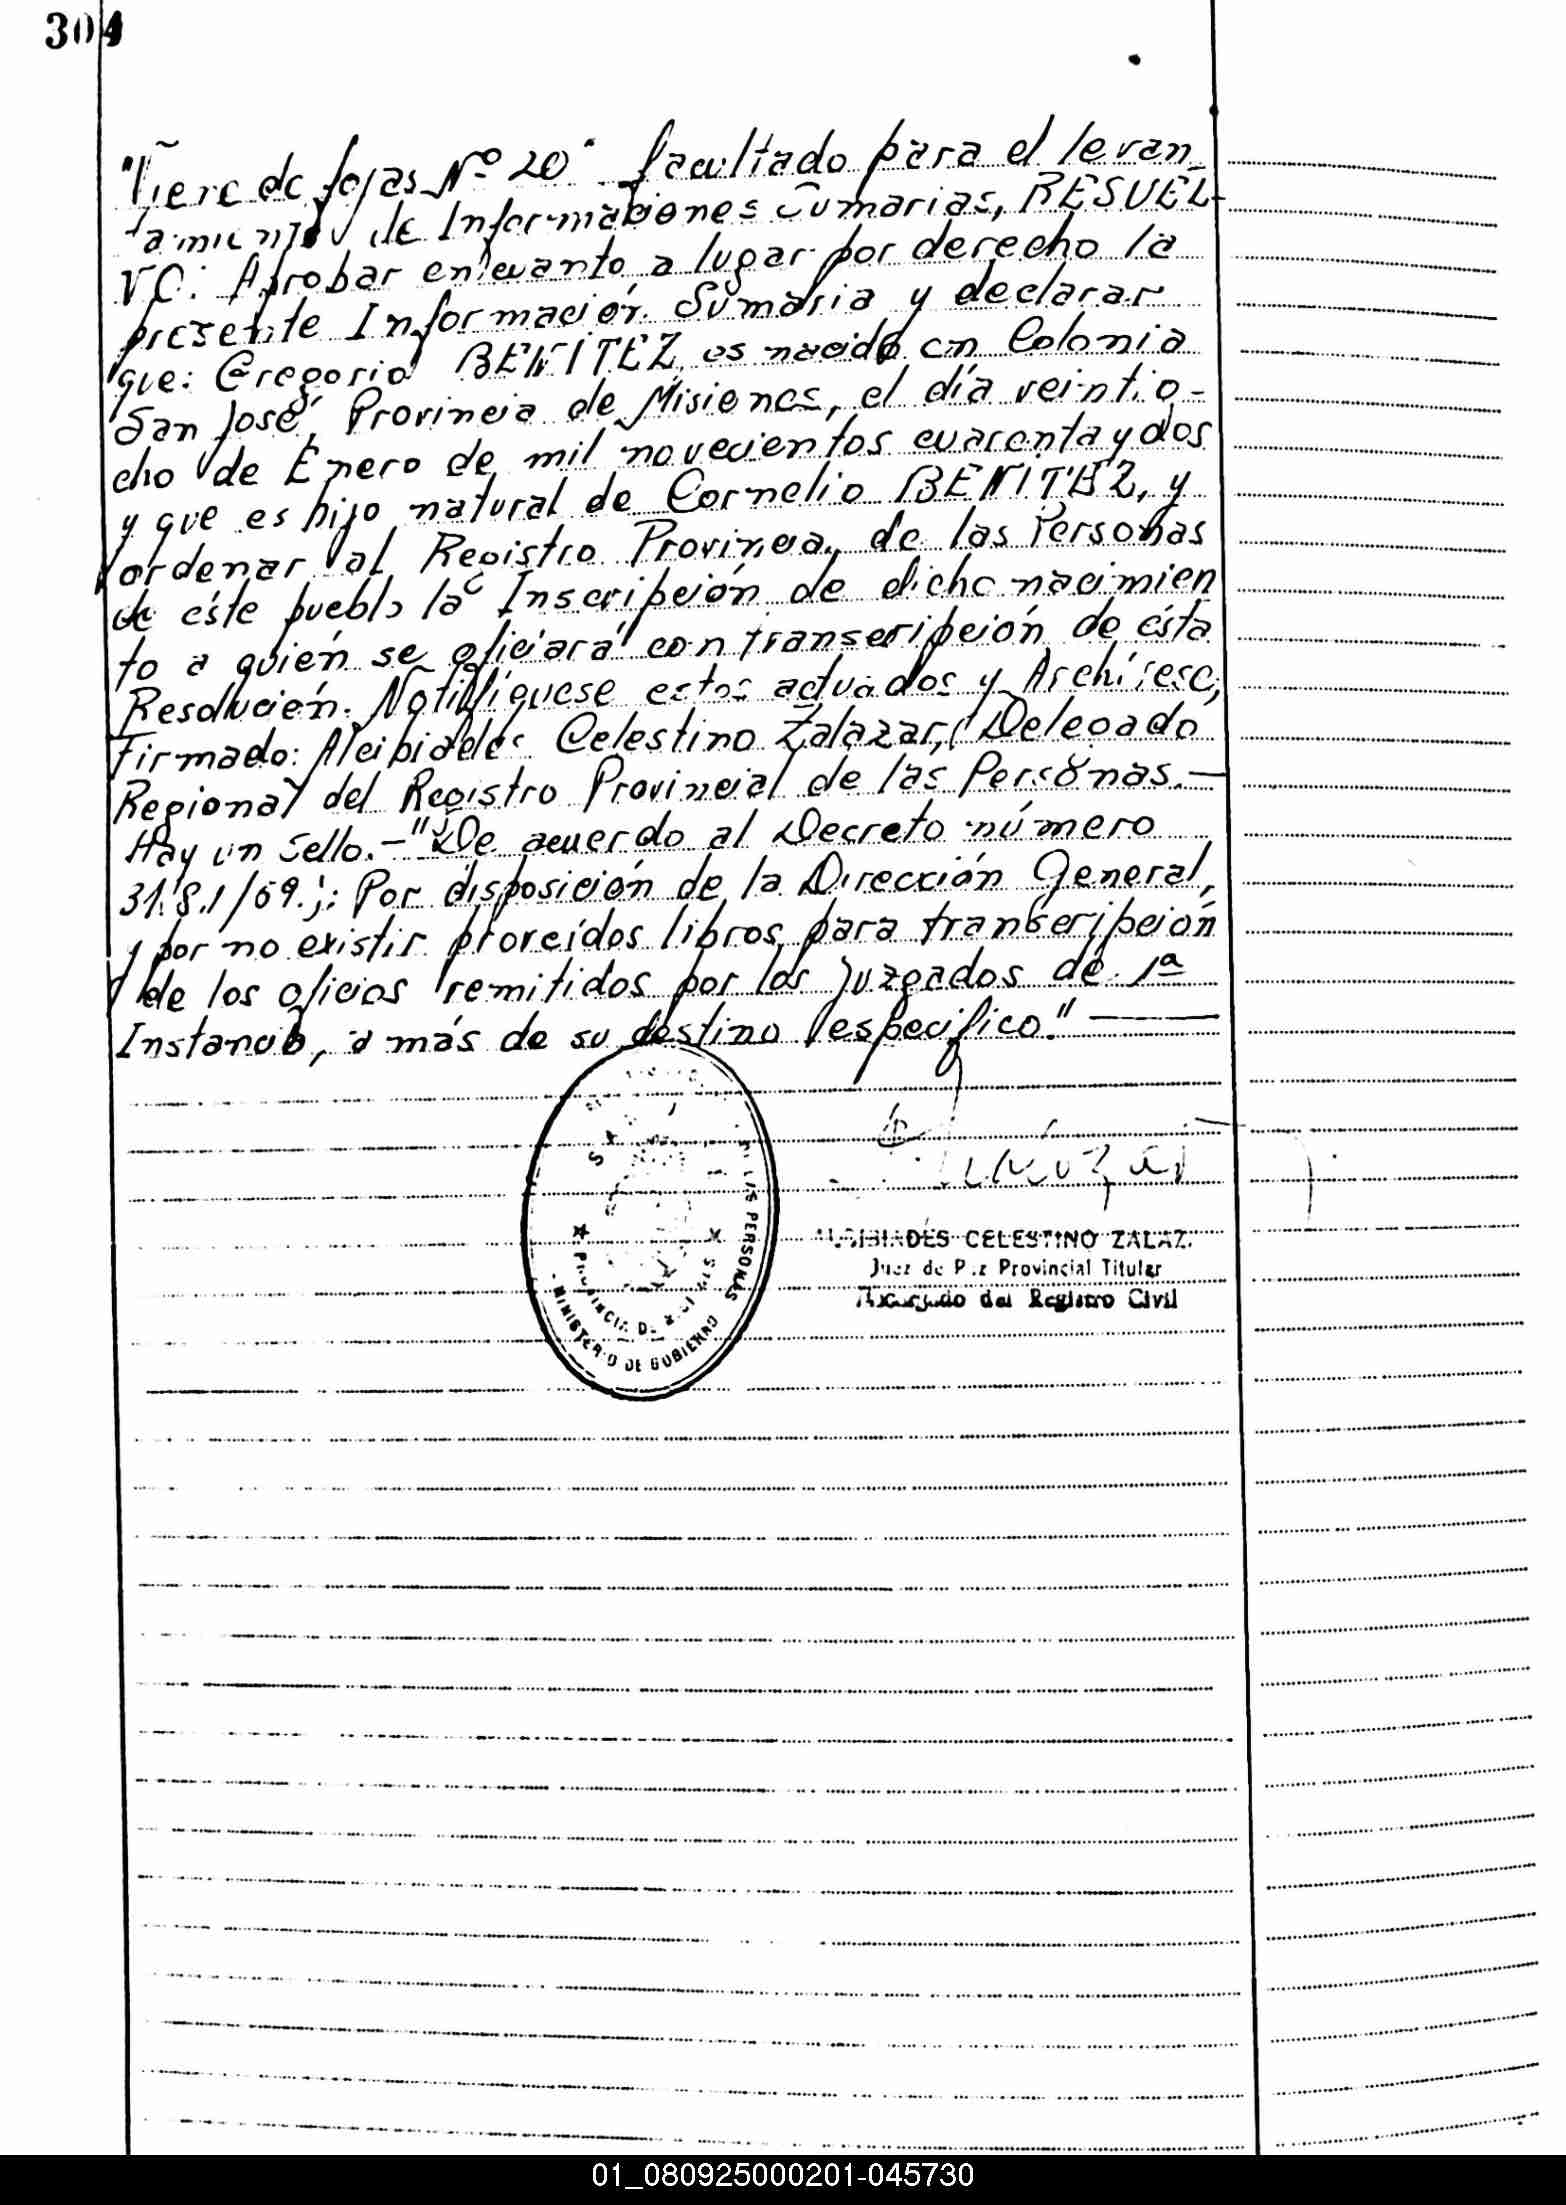 304
"Viene de fojas Nº 20" facultado para el levan
tamiento de Informaciones Sumarias, RESUEL-
VO: Aprobar en cuanto a lugar por derecho la
presente Información Sumaria y declarar
que: Gregorio BENITEZ, es nacido en Colonia
San José, Provincia de Misiones, el día veintio-
cho de Enero de mil novecientos cuarenta y dos
y que es hijo natural de Cornelio BENITEZ, y
ordenar al Registro Provincial de las Personas
de éste pueblo la Inscripción de dicho nacimien
to a quién se oficiará con transcripción de ésta
Resolución. Notifíquese estos actuados y Archívese,
Firmado: Alcibiades Celestino Zalazar, Delegado
Regional del Registro Provincial de las Personas.—
Hay un sello.—"De acuerdo al Decreto número
Por disposición de la Dirección General,
y por no existir proveídos libros para transcripción
de los oficios remitidos por los Juzgados de 1ª
Instancia, a más de su destino especifico." ———
CELESTINO ZALAZ.
Juez de Paz Provincial Titular
Encargado del Registro Civil
LAS PERSONAS
PROVINCIA DE MISIONES
MINISTERIO DE GOBIERNO
01_080925000201-045730